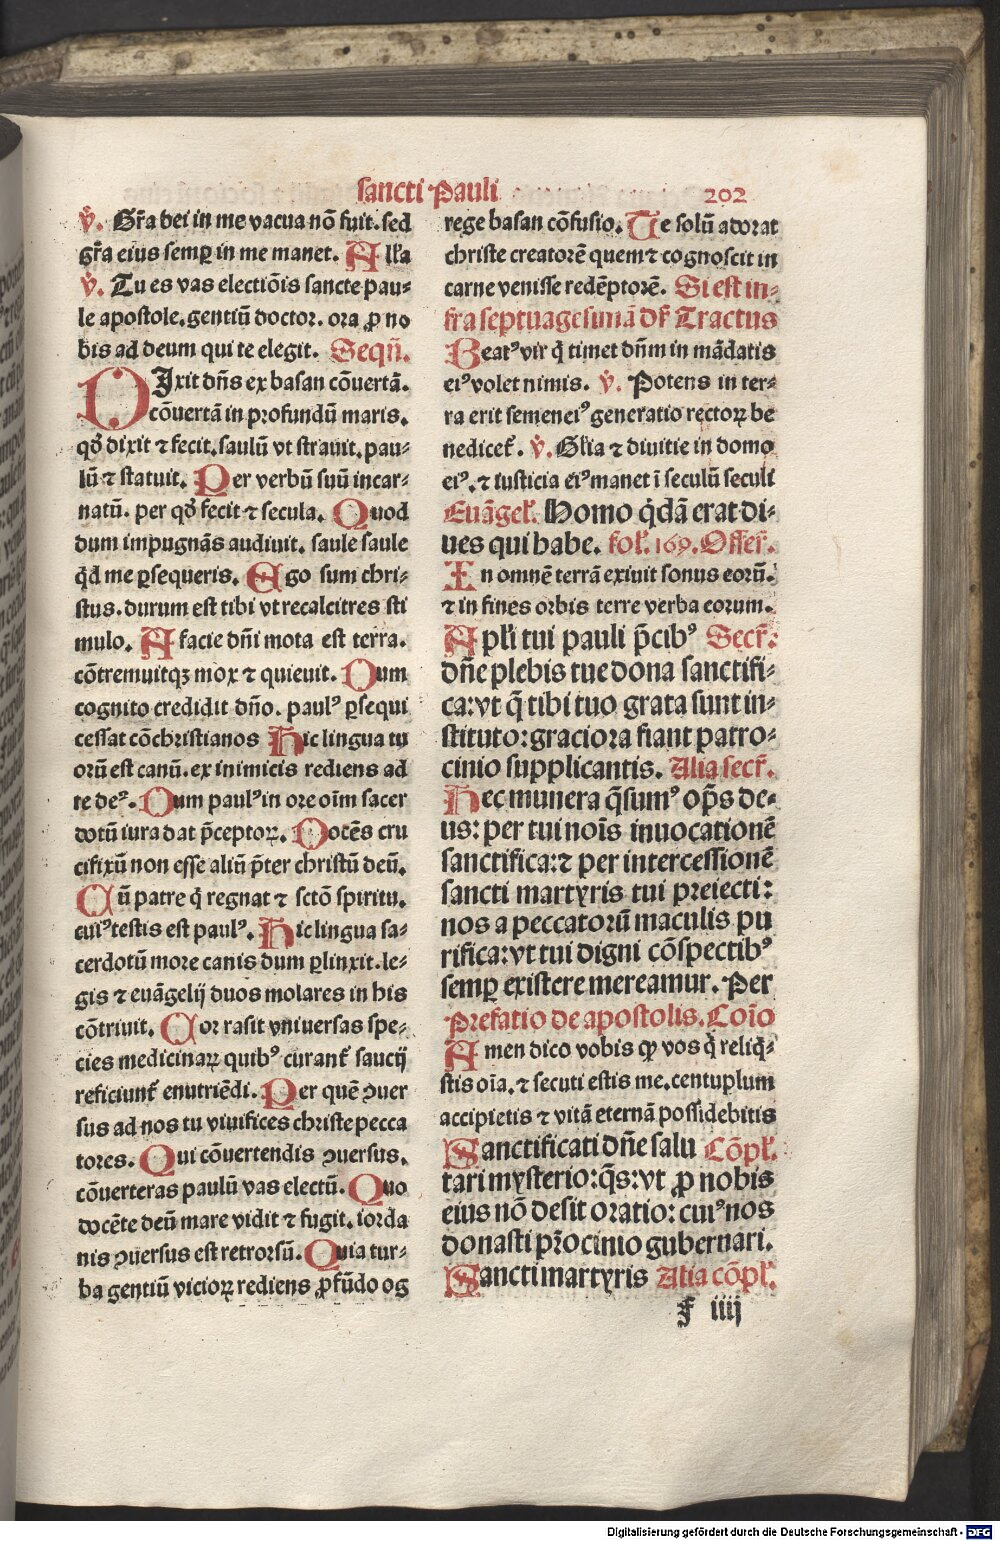 sancti Pauli 202
v̇. Gr̃a dei in me vacua nõ fuit. sed
gr̃a eius semꝑ in me manet. All'a
v̇. Tu es vas electiõis sancte pau⸗
le apostole. gentiũ doctor. ora ꝓ no
bis ad deum qui te elegit. Seqñ.
DIxit dñs ex basan cõuertã.
cõuertã in profundũ maris.
qd' dixit ⁊ fecit. saulũ vt strauit. pau⸗
lũ ⁊ statuit. Per verbũ suũ incar⸗
natũ. per qd' fecit ⁊ secula. Quod
dum impugnãs audiuit. saule saule
qd' me ꝑsequeris. Ego sum chri⸗
stus. durum est tibi vt recalcitres sti
mulo. A facie dñi mota est terra.
cõtremuitqꝫ mox ⁊ quieuit. Dum
cognito credidit dño. paulꝰ ꝑsequi
cessat cõchristianos Hic lingua tu
orũ est canũ. ex inimicis rediens ad
te deꝰ. Dum paulꝰ in ore oĩm sacer
dotũ iura dat p̃ceptoꝝ. Docẽs cru
cifixũ non esse aliũ p̃ter christũ deũ.
Cũ patre q̇ regnat ⁊ sctõ spiritu.
cuiꝰ testis est paulꝰ. Hic lingua sa⸗
cerdotũ more canis dum ꝑlinxit. le⸗
gis ⁊ euãgelij duos molares in his
cõtriuit. Cor rasit vniuersas spe⸗
cies medicinaꝝ quibꝰ curant' saucij
reficiunt' enutriẽdi. Per quẽ ꝯuer
sus ad nos tu viuifices christe pecca
tores. Qui cõuertendis ꝯuersus.
cõuerteras paulũ vas electũ. Quo
docẽte deũ mare vidit ⁊ fugit. iorda
nis ꝯuersus est retrorsũ. Quia tur⸗
ba gentiũ vicioꝝ rediens ꝓfũdo og
rege basan cõfusio. Te solũ adorat
christe creatorẽ quem ⁊ cognoscit in
carne venisse redẽptorẽ. Si est in⸗
fra septuagesimã df' Tractus
Beatꝰ vir q̇ timet dñm in mãdatis
eiꝰ volet nimis. v̇. Potens in ter⸗
ra erit semen eiꝰ generatio rectoꝝ be
nedicet'. v̇. Gl'ia ⁊ diuitie in domo
eiꝰ. ⁊ iusticia eiꝰ manet ĩ seculũ seculi
Euãgel'. Homo q̇dã erat di⸗
ues qui habe. fol'. 169. Offer'.
In omnẽ terrã exiuit sonus eorũ.
⁊ in fines orbis terre verba eorum.
Apl'i tui pauli p̃cibꝰ Secr'.
dñe plebis tue dona sanctifi⸗
ca: vt q̃ tibi tuo grata sunt in⸗
stituto: graciora fiant patro⸗
cinio supplicantis. Alia secr'.
Hec munera q̃sumꝰ op̃s de⸗
us: per tui noĩs inuocationẽ
sanctifica: ⁊ per intercessionẽ
sancti martyris tui preiecti:
nos a peccatorũ maculis pu
rifica: vt tui digni cõspectibꝰ
semꝑ existere mereamur. Per
Prefatio de apostolis. Coĩo
Amen dico vobis ꝙ vos q̇ reliq̇⸗
stis oĩa. ⁊ secuti estis me. centuplum
accipietis ⁊ vitã eternã possidebitis
Sanctificati dñe salu Cõpl'.
tari mysterio: q̃s: vt ꝓ nobis
eius nõ desit oratio: cuiꝰ nos
donasti pr̃ocinio gubernari.
Sancti martyris Alia cõpl'.
f iiij
Digitalisierung gefördert durch die Deutsche Forschungsgemeinschaft - DFG